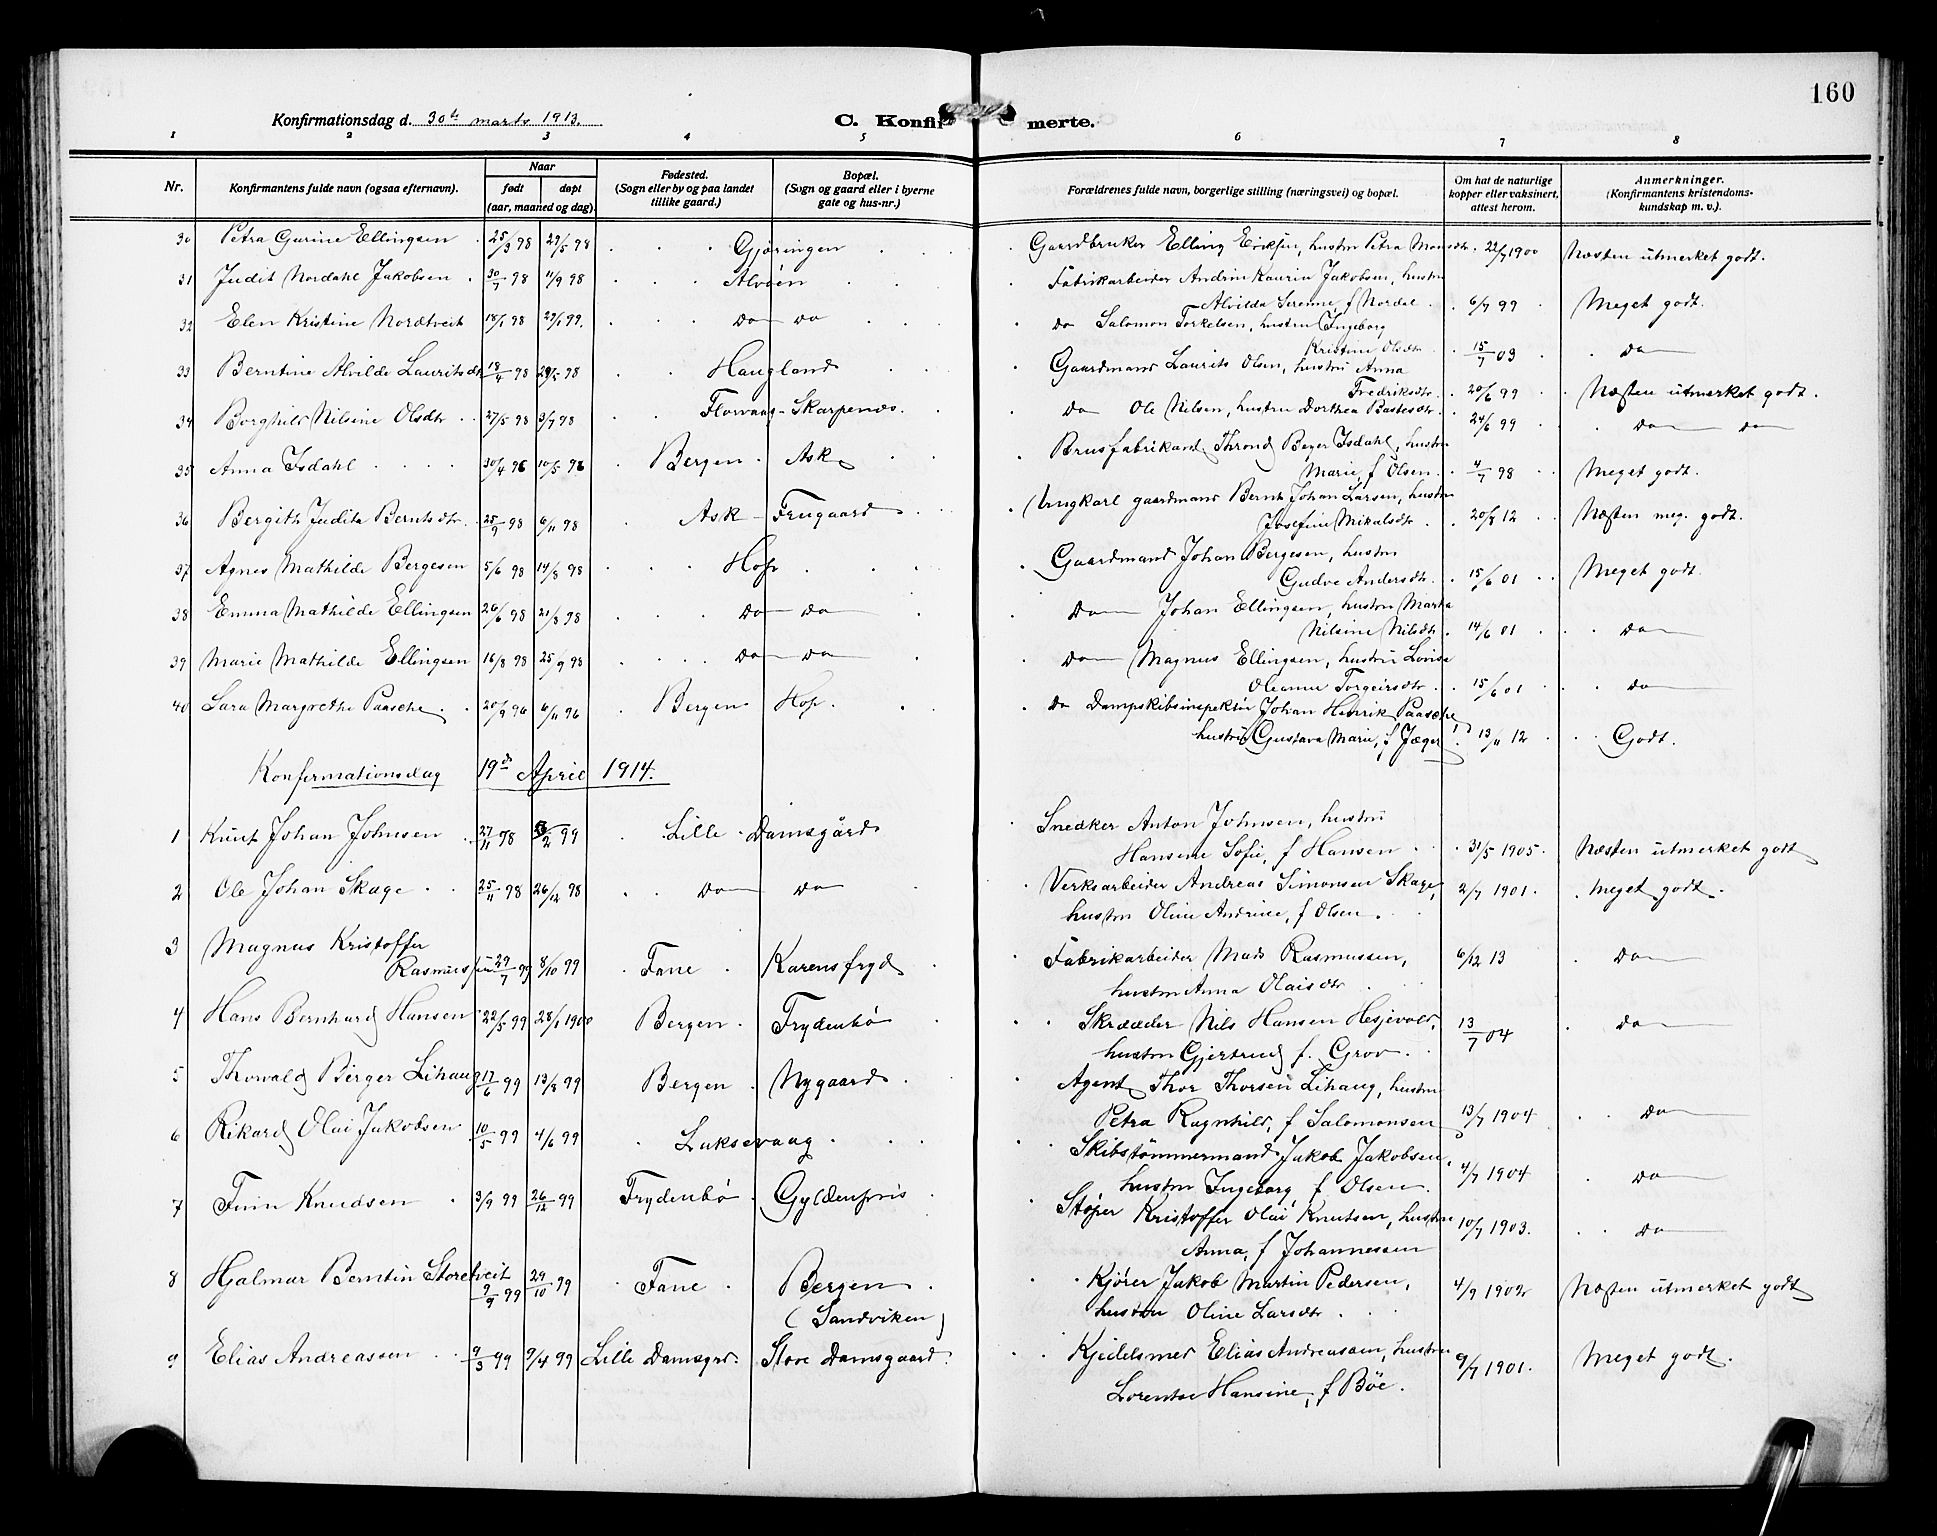 160
Konfirmationsdag d. 30te marts 1913.
C. Konfirmerte.
1 2 3 4 5 6 7 8
Nr.
Konfirmantens fulde navn (ogsaa efternavn).
Naar
født døpt
(aar, maaned og dag).
Fødested.
(Sogn eller by og paa landet
tillike gaard.)
Bopæl.
(Sogn og gaard eller i byerne
gate og hus-nr.)
Forældrenes fulde navn, borgerlige stilling (næringsvei) og bopæl.
Om hat de naturlige
kopper eller vaksinert,
attest herom.
Anmerkninger.
(Konfirmantens kristendoms-
kundskap m. v.).
30 Petra Gurine Ellingsen 25/3 98 29/5 98 Gjæringen Gaardbruker Elling Eriksen, hustru Petra Monsdtr. 22/7 1900 Næsten utmerket godt.
31 Judit Nordahl Jakobsen 30/7 98 11/9 98 Alvøen Fabrikarbeider Andrin Kaurin Jakobsen, hustru
Alvilda Serenne f Nordal 6/7 99 Meget godt.
32 Elen Kristine Nordtveit 18/1 98 29/1 99. Do Do Do Salomon Torkelsen, hustru Ingeborg
Kristine Olsdtr 15/7 03 Do
33 Berntine Alvilde Lauritsdtr 18/4 98 29/5 98 Haugland Gaardmand Laurits Olsen, hustru Anna
Fredriksdtr. 20/6 99 Næsten utmerket godt.
34 Borghild Nilsine Olsdtr 27/5 98 3/7 98 Florvaag-Skarpenes. Do Ole Nilsen, hustru Dorthea Bastesdtr. 24/6 99 Do Do
35 Anna Isdahl 30/4 96 10/5 96 Bergen Ask Brusfabrikand Thrond Beyer Isdahl, hustru
Marie, f Olsen. 4/7 98 Meget godt.
36 Bergith Judita Berntsdtr. 25/9 98 6/11 98 Ask Frugaard Ungkarl gaardmand Bernt Johan Larsen, hustru
Josefine Mikalsdtr 20/8 12 Næsten meg. godt.
37 Agnes Mathilde Bergesen 5/6 98 14/8 98 Hop Gaardmand Johan Bergesen, hustru
Gudve Andersdtr. 15/6 01 Meget godt.
38 Emma Mathilde Ellingsen 26/6 98 21/8 98 Do Do Do Johan Ellingsen, hustru Marta
Nilsine Nilsdtr. 14/6 01 Do
39 Marie Mathilde Ellingsen 16/8 98 25/9 98 Do Do Do Magnus Ellingsen, hustru Lovise
Oleanna Torgeirsdtr 15/6 01 Do
40 Sara Margrethe Paasche 20/9 96 6/11 96 Bergen Hop. Do Dampskibsinspektør Johan Henrik Paasche,
hustru Gustava Marie, f Jæger 13/11 12 Godt.
Konfirmationsdag 19de April 1914.
1 Knut Johan Johnsen 27/11 98 5/2 99 Lille Damsgård Snedker Anton Johnsen, hustru
Hansine Sofie, f Hansen 31/5 1905. Næsten utmerket godt
2 Ole Johan Skage 25/11 98 26/12 98 Do Do Verksarbeider Andreas Simonsen Skage, 2/7 1901 Meget godt.
hustru Oline Andrine, f Olsen.
3 Magnus Kristoffer
Rasmussen 29/7 99 8/10 99 Fane Karensfryd Fabrikarbeider Mads Rasmussen, 6/12 13 Do
hustru Anna Olaisdtr
4 Hans Bernhard Hansen 22/5 99 28/1 1900 Bergen Frydenbø Skrædder Nils Hansen Hesjevold, 13/7 04 Do
hustru Gjertrud f. Grov.
5 Thorvald Birger Lihaug 17/6 99 13/8 99 Bergen Nygaard Agent Thor Thorsen Lihaug, hustru
Petra Ragnhild, f Salomonsen 13/7 1904 Do
6 Rikard Olai Jakobsen 10/5 99 4/6 99 Luksevaag Skibstømmermand Jakob Jakobsen,
hustru Ingeborg f Olsen. 4/7 1904 Do
7 Finn Knudsen 3/9 99 26/12 99 Frydenbø Gyldenpris Støper Kristoffer Olai Knutsen, hustru 10/7 1903. Do
Anna, f Johannessen
8 Hjalmar Berntin Storetveit 9/9 99 29/10 99 Fane Bergen Kjører Jakob Martin Pedersen, 4/9 1902 Næsten utmerket godt
(Sandviken) hustru Oline Larsdtr
9 Elias Andreassen 9/3 99 9/4 99 Lille Damsgrd. Store Damsgaard. Kjedelsmed Elias Andreassen, hustru 9/7 1901. Meget godt.
Lorentse Hansine, f Bøe.